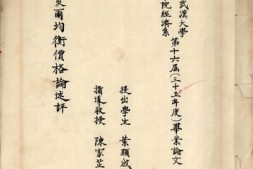 武漢大學
院經濟系
第十六屆(三十五年度)畢業論文
爾均衡價格論述評
提出學生 葉顯啟
指導教授 陳家芷